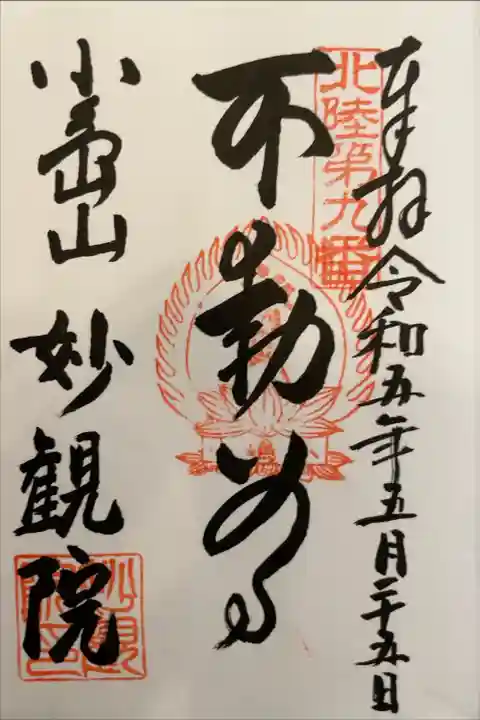 奉拝令和五年五月二十五日
北陸第九番
不動尊
小嶋山 妙観院
妙観院印